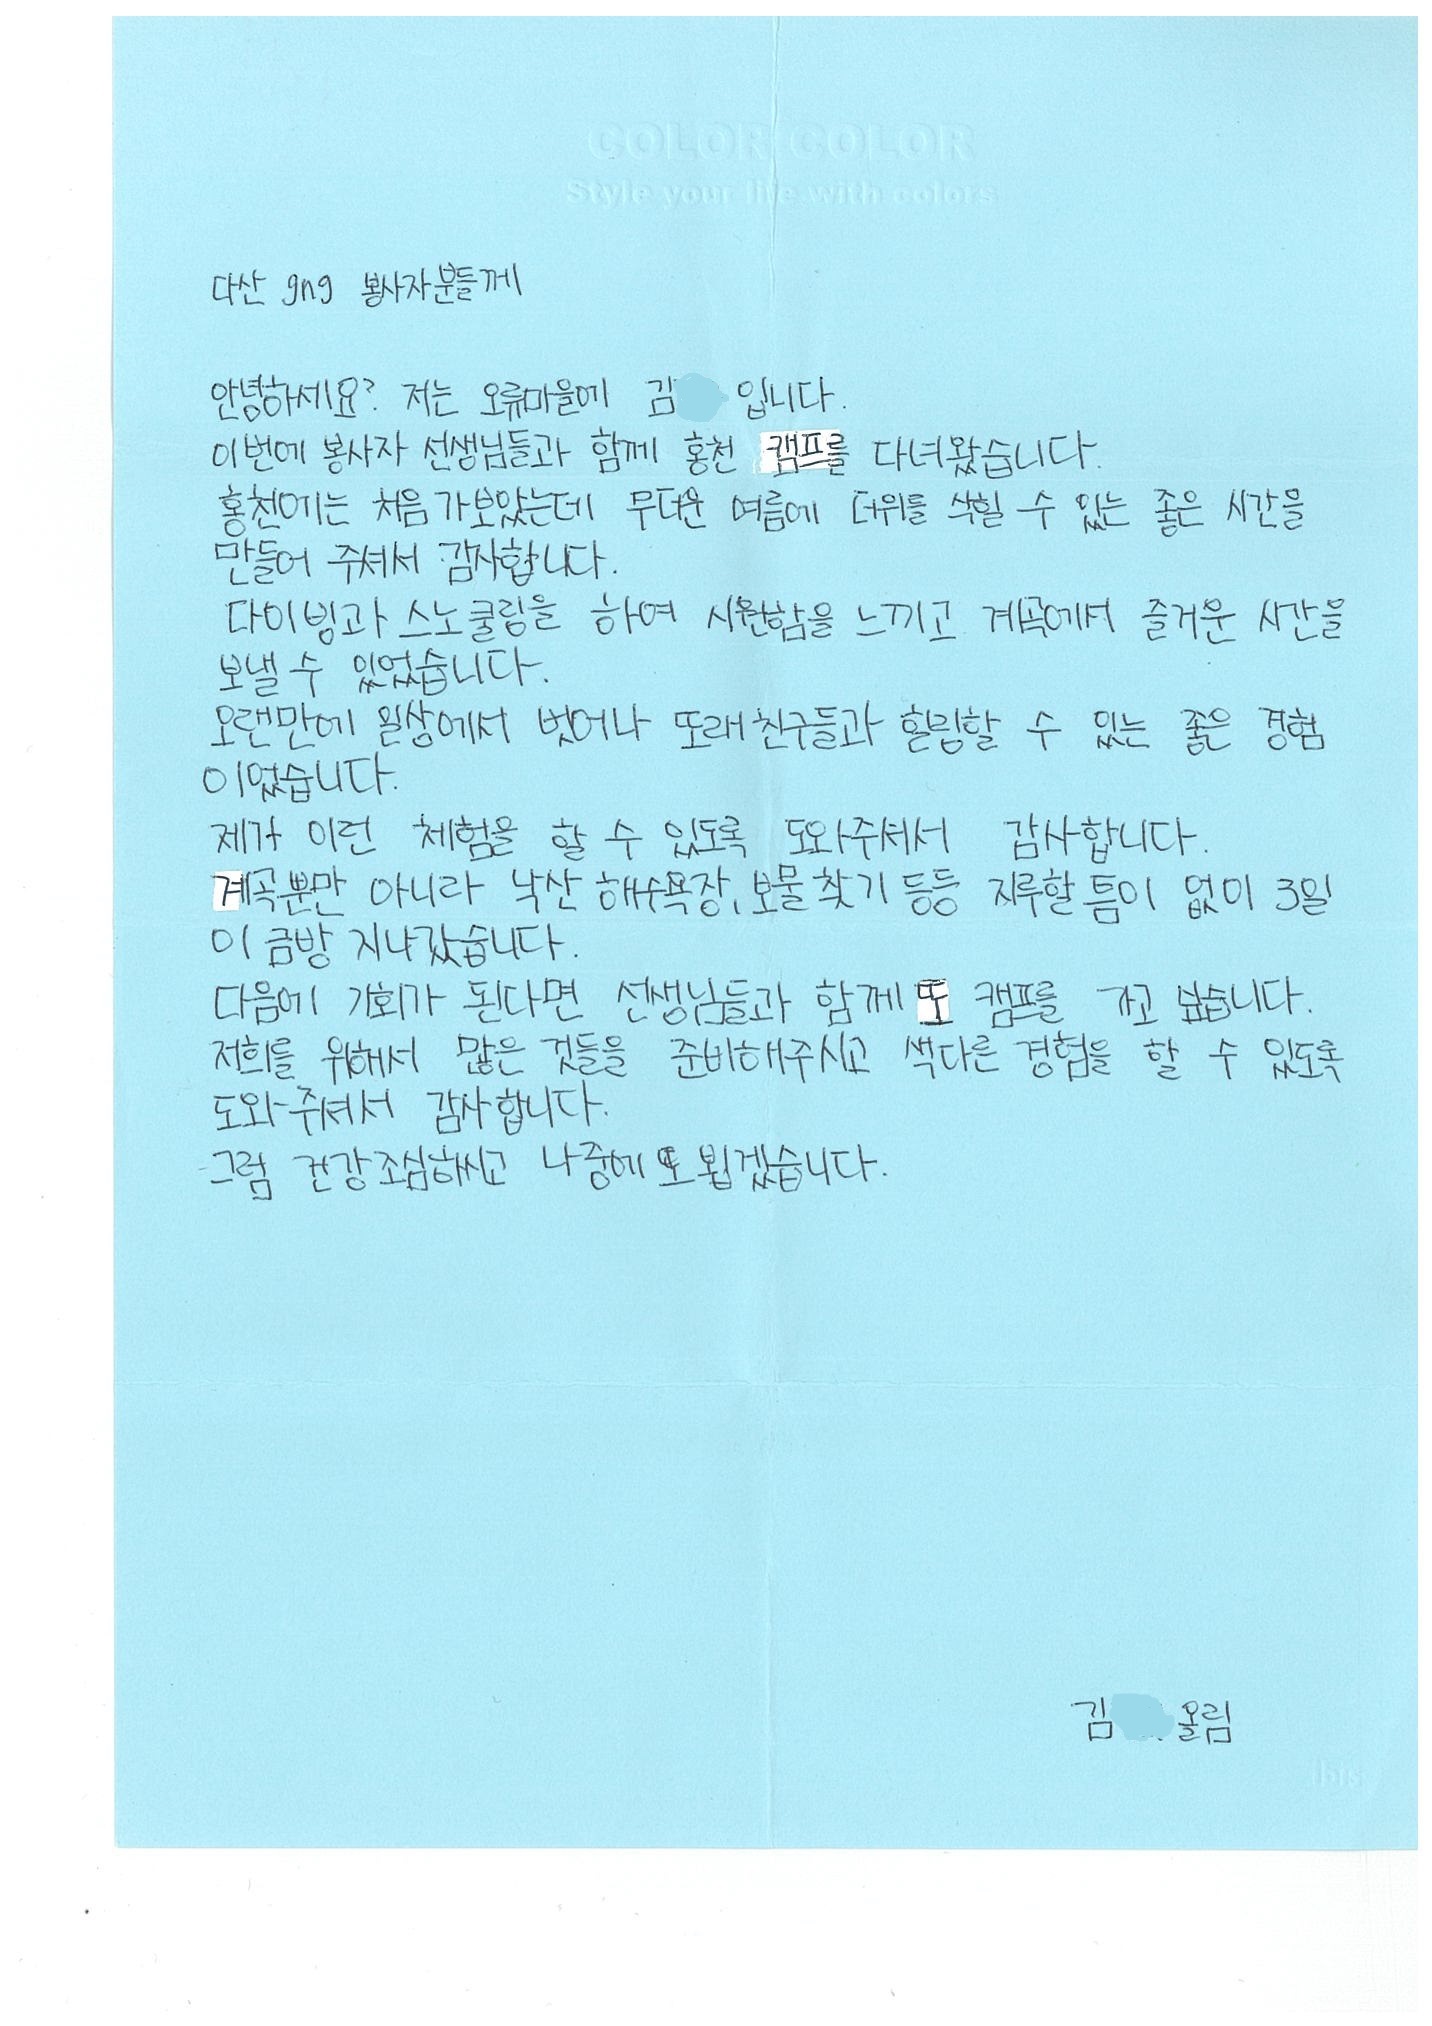 COLOR COLOR
Style your life with colors
다산 gng 봉사자분들께
안녕하세요? 저는 오류마을에 김 입니다.
이번에 봉사자 선생님들과 함께 홍천 캠프를 다녀왔습니다.
홍천에는 처음 가보았는데 무더운 여름에 더위를 식힐 수 있는 좋은 시간을
만들어 주셔서 감사합니다.
다이빙과 스노쿨링을 하여 시원함을 느끼고 계곡에서 즐거운 시간을
보낼 수 있었습니다.
오랜만에 일상에서 벗어나 또래 친구들과 힐링할 수 있는 좋은 경험
이었습니다.
제가 이런 체험을 할 수 있도록 도와주셔서 감사합니다.
계곡뿐만 아니라 낙산 해수욕장, 보물찾기 등등 지루할 틈이 없이 3일
이 금방 지나갔습니다.
다음에 기회가 된다면 선생님들과 함께 또 캠프를 가고 싶습니다.
저희를 위해서 많은 것들을 준비해주시고 색다른 경험을 할 수 있도록
도와주셔서 감사합니다.
그럼 건강조심하시고 나중에 또 뵙겠습니다.
김 올림
ibis